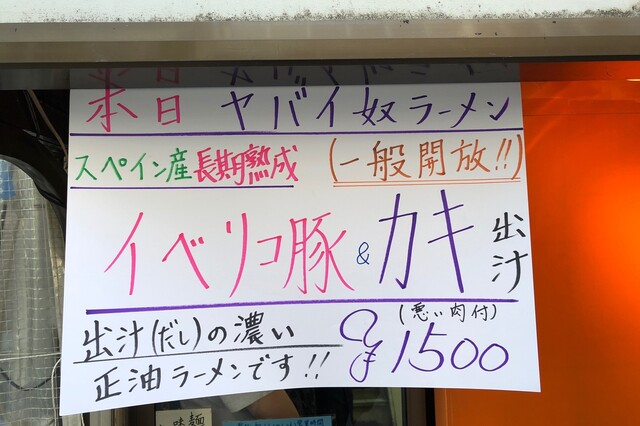 本日 ヤバイ奴ラーメン
スペイン産長期熟成 (一般開放!!)
イベリコ豚 & カキ出汁
(悪い肉付)
出汁(だし)の濃い
正油ラーメンです!! ¥1500
味麺